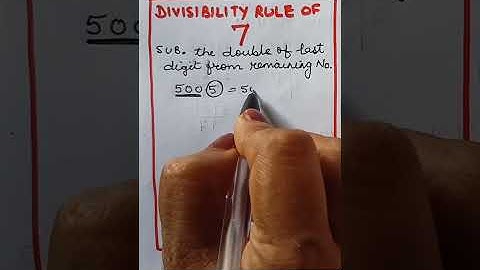 DIVISIBILITY RULE OF
7
SUB. the double of last
digit from remaining No.
500 5 = 50
500